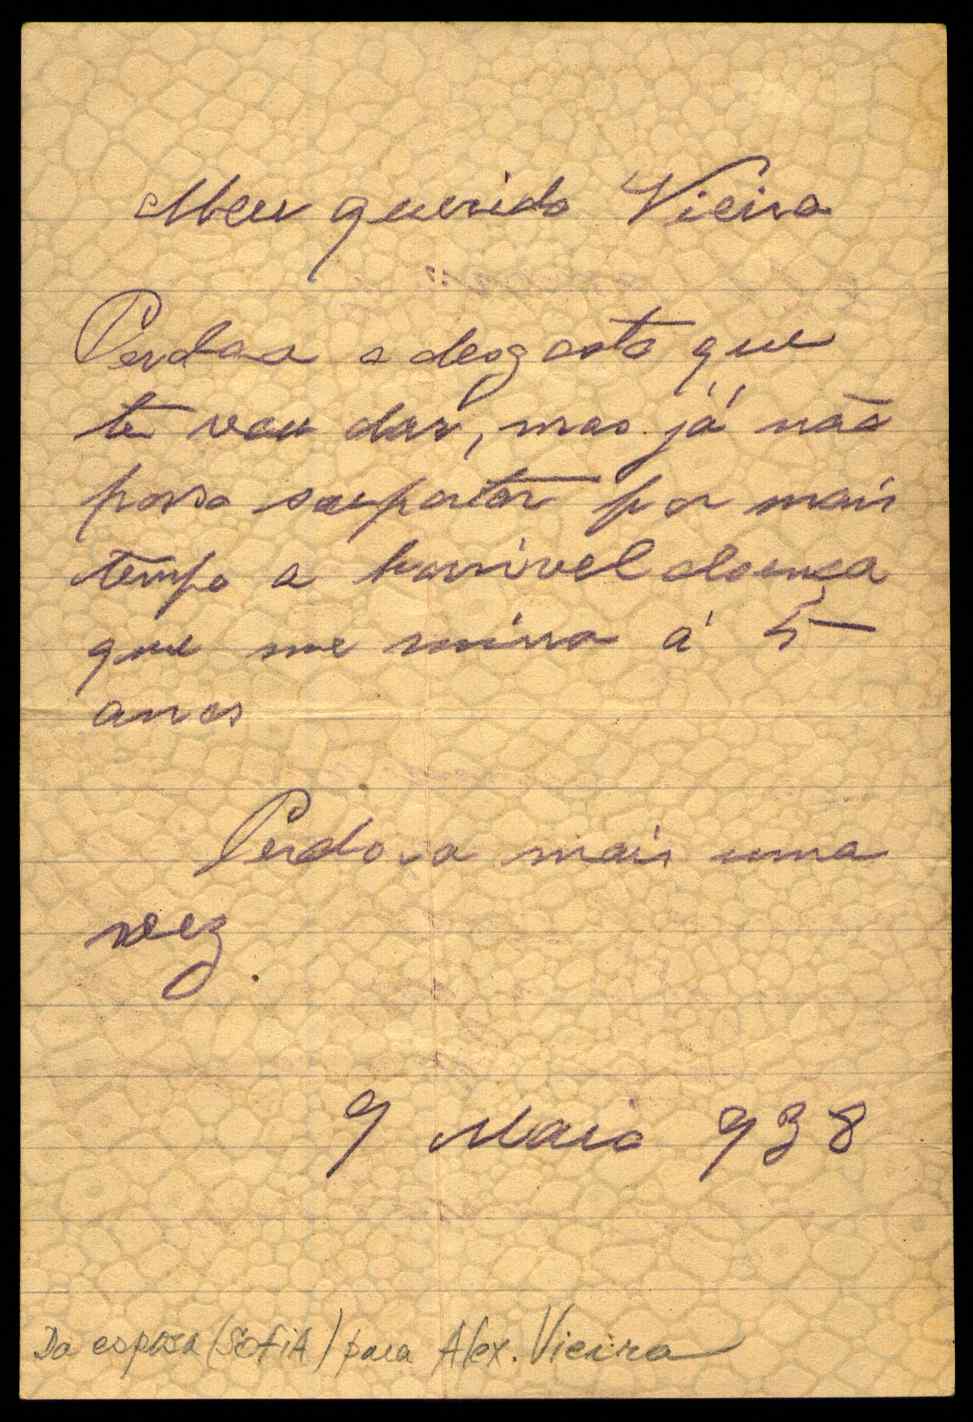 Meu querido Vieira
Perdoa o desgosto que
te vou dar, mas já não
posso souportar por mais
tempo a horrivel doença
que me mina á 5
anos
Perdoa mais uma
vez.
9 Maio 938
Da esposa (SOFIA) para Alex. Vieira